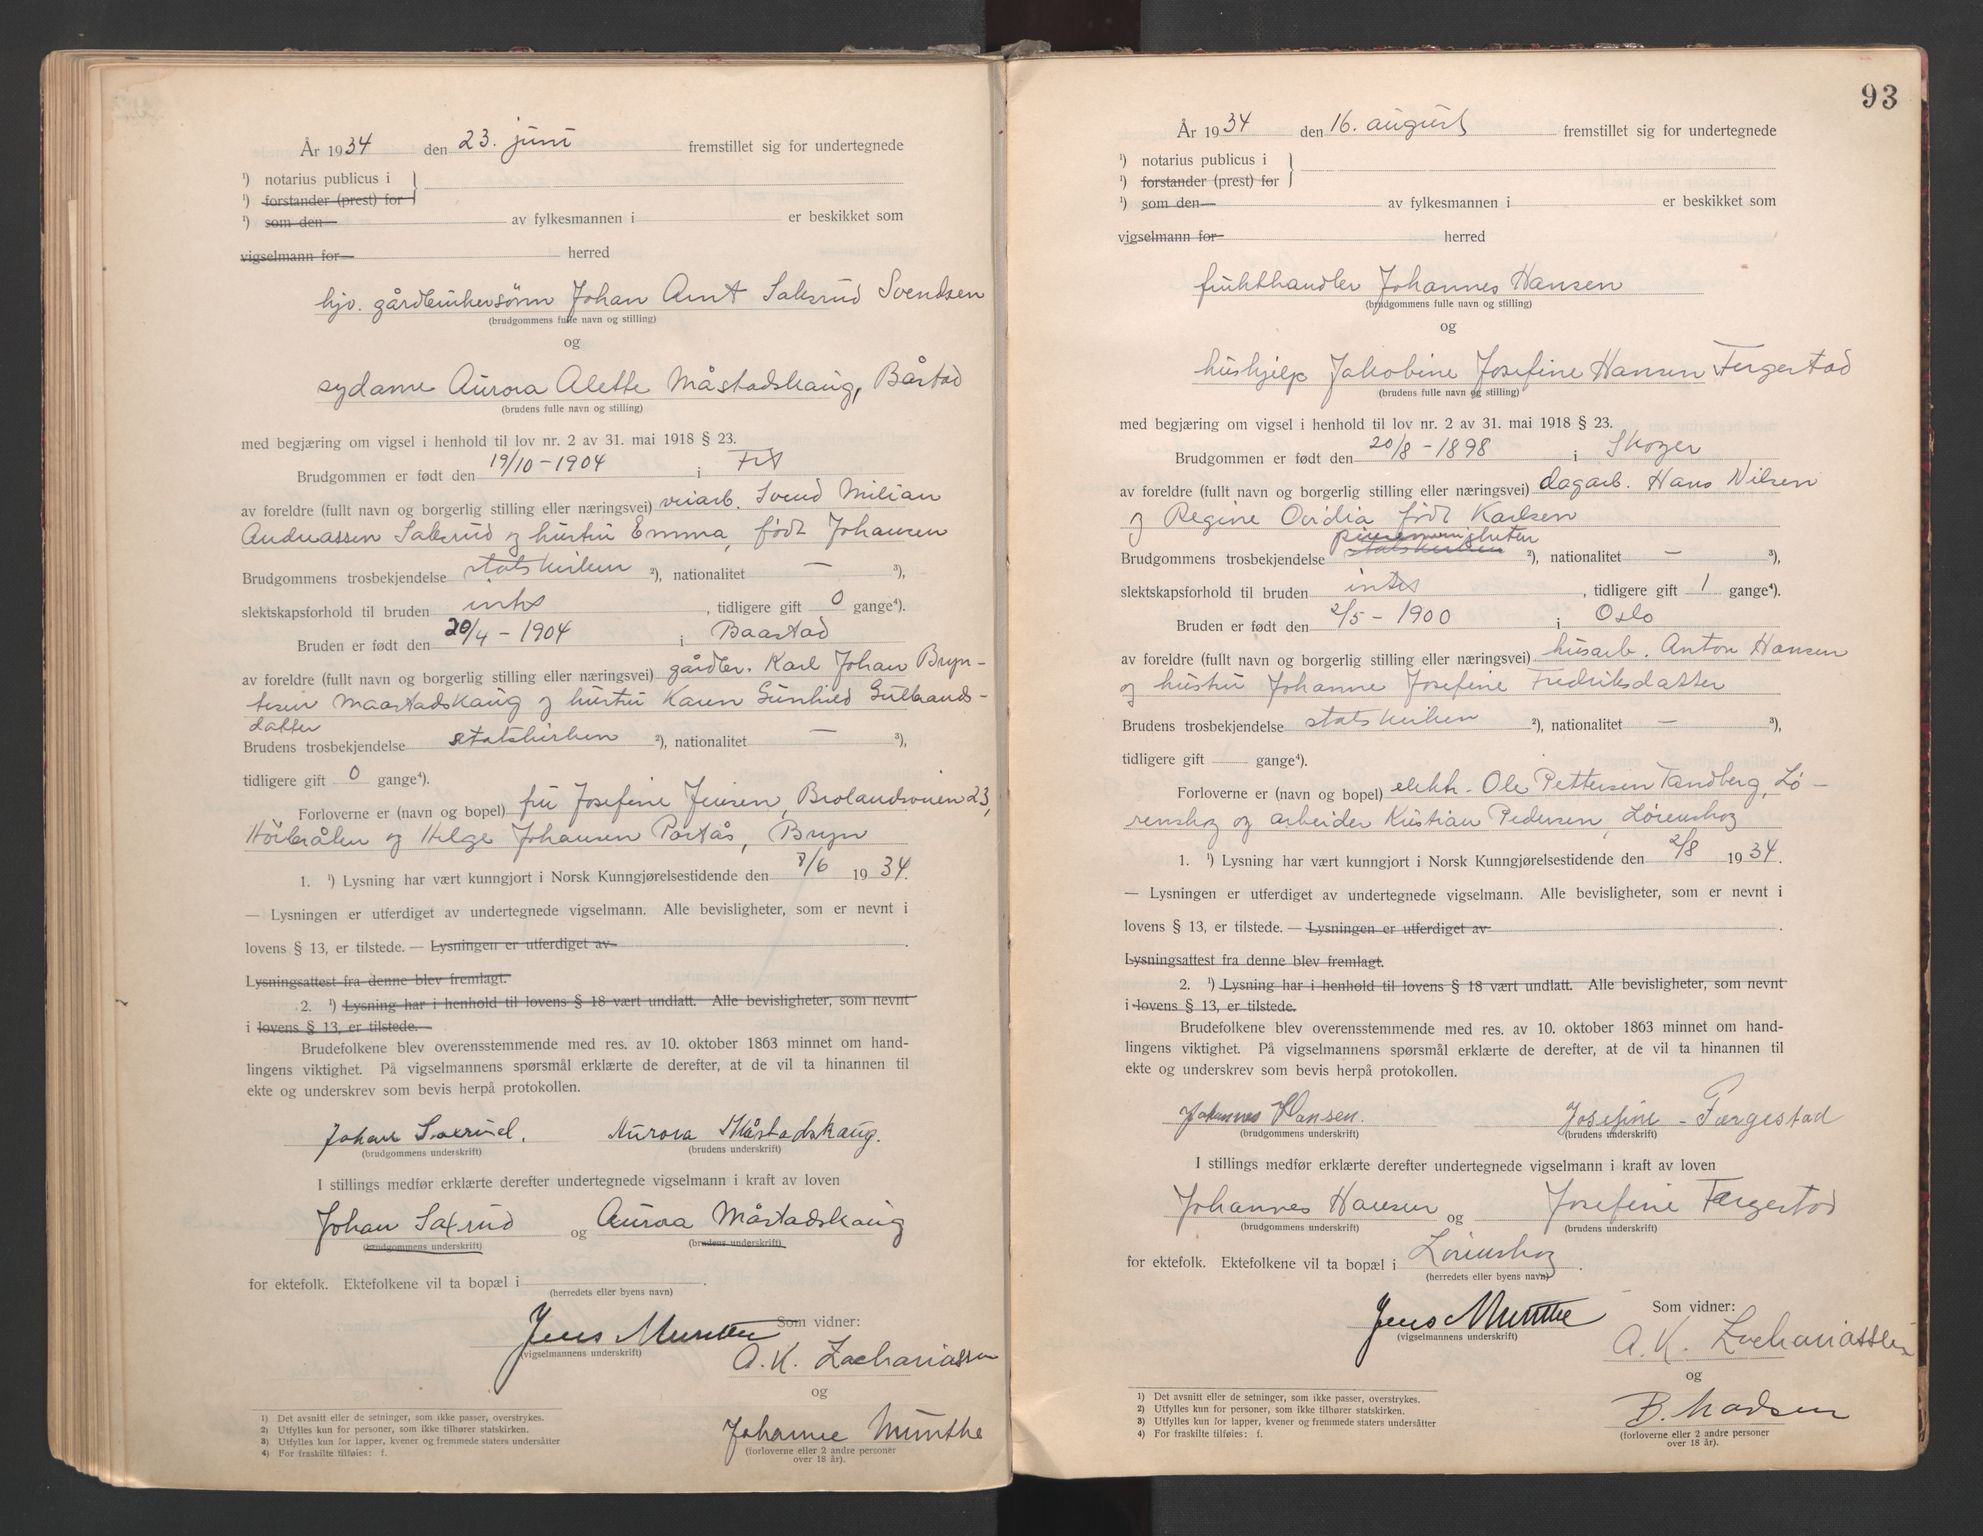 År 1934 den 23. juni fremstillet sig for undertegnede
¹) notarius publicus i
¹) forstander (prest) for
¹) som den av fylkesmannen i er beskikket som
vigselmann for herred
hjv. gårdbrukersønn Johan Arnt Sakrud Svendsen
(brudgommens fulle navn og stilling)
og
sydame Aurora Alette Måstadskaug, Båstad
(brudens fulle navn og stilling)
med begjæring om vigsel i henhold til lov nr. 2 av 31. mai 1918 § 23.
Brudgommen er født den 19/10-1904 i Fet
av foreldre (fullt navn og borgerlig stilling eller næringsvei) veiarb. Svend Milian
Andreassen Sakrud og hustru Emma, født Johansen
Brudgommens trosbekjendelse statskirken ²), nationalitet — ³),
slektskapsforhold til bruden intet, tidligere gift 0 gange⁴).
Bruden er født den 20/4 - 1904 i Baastad
av foreldre (fullt navn og borgerlig stilling eller næringsvei) gårdbr. Karl Johan Bryn-
tesen Maastadskaug og hustru Karen Gunhild Gulbrands-
datter
Brudens trosbekjendelse statskirken ²), nationalitet — ³),
tidligere gift 0 gange⁴).
Forloverne er (navn og bopel) fru Josefine Jensen, 23,
og Helge Johansen Portås, Bryn
1. ¹) Lysning har vært kunngjort i Norsk Kunngjørelsestidende den 8/6 1934.
— Lysningen er utferdiget av undertegnede vigselmann. Alle bevisligheter, som er nevnt i
lovens § 13, er tilstede. — Lysningen er utferdiget av
Lysningsattest fra denne blev fremlagt.
2. ¹) Lysning har i henhold til lovens § 18 vært undlatt. Alle bevisligheter, som nevnt
i lovens § 13, er tilstede. —
Brudefolkene blev overensstemmende med res. av 10. oktober 1863 minnet om hand-
lingens viktighet. På vigselmannens spørsmål erklærte de derefter, at de vil ta hinannen til
ekte og underskrev som bevis herpå protokollen.
Johan Saxrud. Aurora Måstadskaug.
(brudgommens underskrift) (brudens underskrift)
I stillings medfør erklærte derefter undertegnede vigselmann i kraft av loven
Johan Saxrud og Aurora Måstadskaug
(brudgommens underskrift) (brudens underskrift)
for ektefolk. Ektefolkene vil ta bopæl i
(herredets eller byens navn)
Jens Munthe Som vidner:
(vigselmannens underskrift)
A. K. Zachariassen
og
Johanne Munthe
(forloverne eller 2 andre personer
over 18 år).
1) Det avsnitt eller de setninger, som ikke passer, overstrykes.
2) Utfylles kun for personer, som ikke tilhører statskirken.
3) Utfylles kun for lapper, kvener og fremmede staters undersåtter
4) For fraskilte tilføies: f.
93
År 1934 den 16. august fremstillet sig for undertegnede
¹) notarius publicus i
¹) forstander (prest) for
¹) som den av fylkesmannen i er beskikket som
vigselmann for herred
frukthandler Johannes Hansen
(brudgommens fulle navn og stilling)
og
hushjelp Jakobine Josefine Hansen Fergestad
(brudens fulle navn og stilling)
med begjæring om vigsel i henhold til lov nr. 2 av 31. mai 1918 § 23.
Brudgommen er født den 20/8 - 1898 i Skoger
av foreldre (fullt navn og borgerlig stilling eller næringsvei) dagarb. Hans Nilsen
og Regine Ovidia født Karlsen
Brudgommens trosbekjendelse statskirken ²), nationalitet — ³),
slektskapsforhold til bruden intet, tidligere gift 1 gange⁴).
Bruden er født den 2/5 - 1900 i Oslo
av foreldre (fullt navn og borgerlig stilling eller næringsvei) husarb. Anton Hansen
og hustru Johanne Josefine Fredriksdatter
Brudens trosbekjendelse statskirken ²), nationalitet — ³),
tidligere gift gange⁴).
Forloverne er (navn og bopel) elektr. Ole Pettersen Tandberg, Lø-
renskog og arbeider Kristian Pedersen, Lørenskog
1. ¹) Lysning har vært kunngjort i Norsk Kunngjørelsestidende den 2/8 1934.
— Lysningen er utferdiget av undertegnede vigselmann. Alle bevisligheter, som er nevnt i
lovens § 13, er tilstede. — Lysningen er utferdiget av
Lysningsattest fra denne blev fremlagt.
2. ¹) Lysning har i henhold til lovens § 18 vært undlatt. Alle bevisligheter, som nevnt
i lovens § 13, er tilstede.
Brudefolkene blev overensstemmende med res. av 10. oktober 1863 minnet om hand-
lingens viktighet. På vigselmannens spørsmål erklærte de derefter, at de vil ta hinannen til
ekte og underskrev som bevis herpå protokollen.
Johannes Hansen. Josefine - Færgestad
(brudgommens underskrift) (brudens underskrift)
I stillings medfør erklærte derefter undertegnede vigselmann i kraft av loven
Johannes Hansen og Josefine Fergestad
(brudgommens underskrift) (brudens underskrift)
for ektefolk. Ektefolkene vil ta bopæl i Lørenskog.
(herredets eller byens navn)
Jens Munthe Som vidner:
(vigselmannens underskrift)
A. K. Zachariassen
og
B. Madsen
(forloverne eller 2 andre personer
over 18 år).
1) Det avsnitt eller de setninger, som ikke passer, overstrykes.
2) Utfylles kun for personer, som ikke tilhører statskirken.
3) Utfylles kun for lapper, kvener og fremmede staters undersåtter
4) For fraskilte tilføies: f.